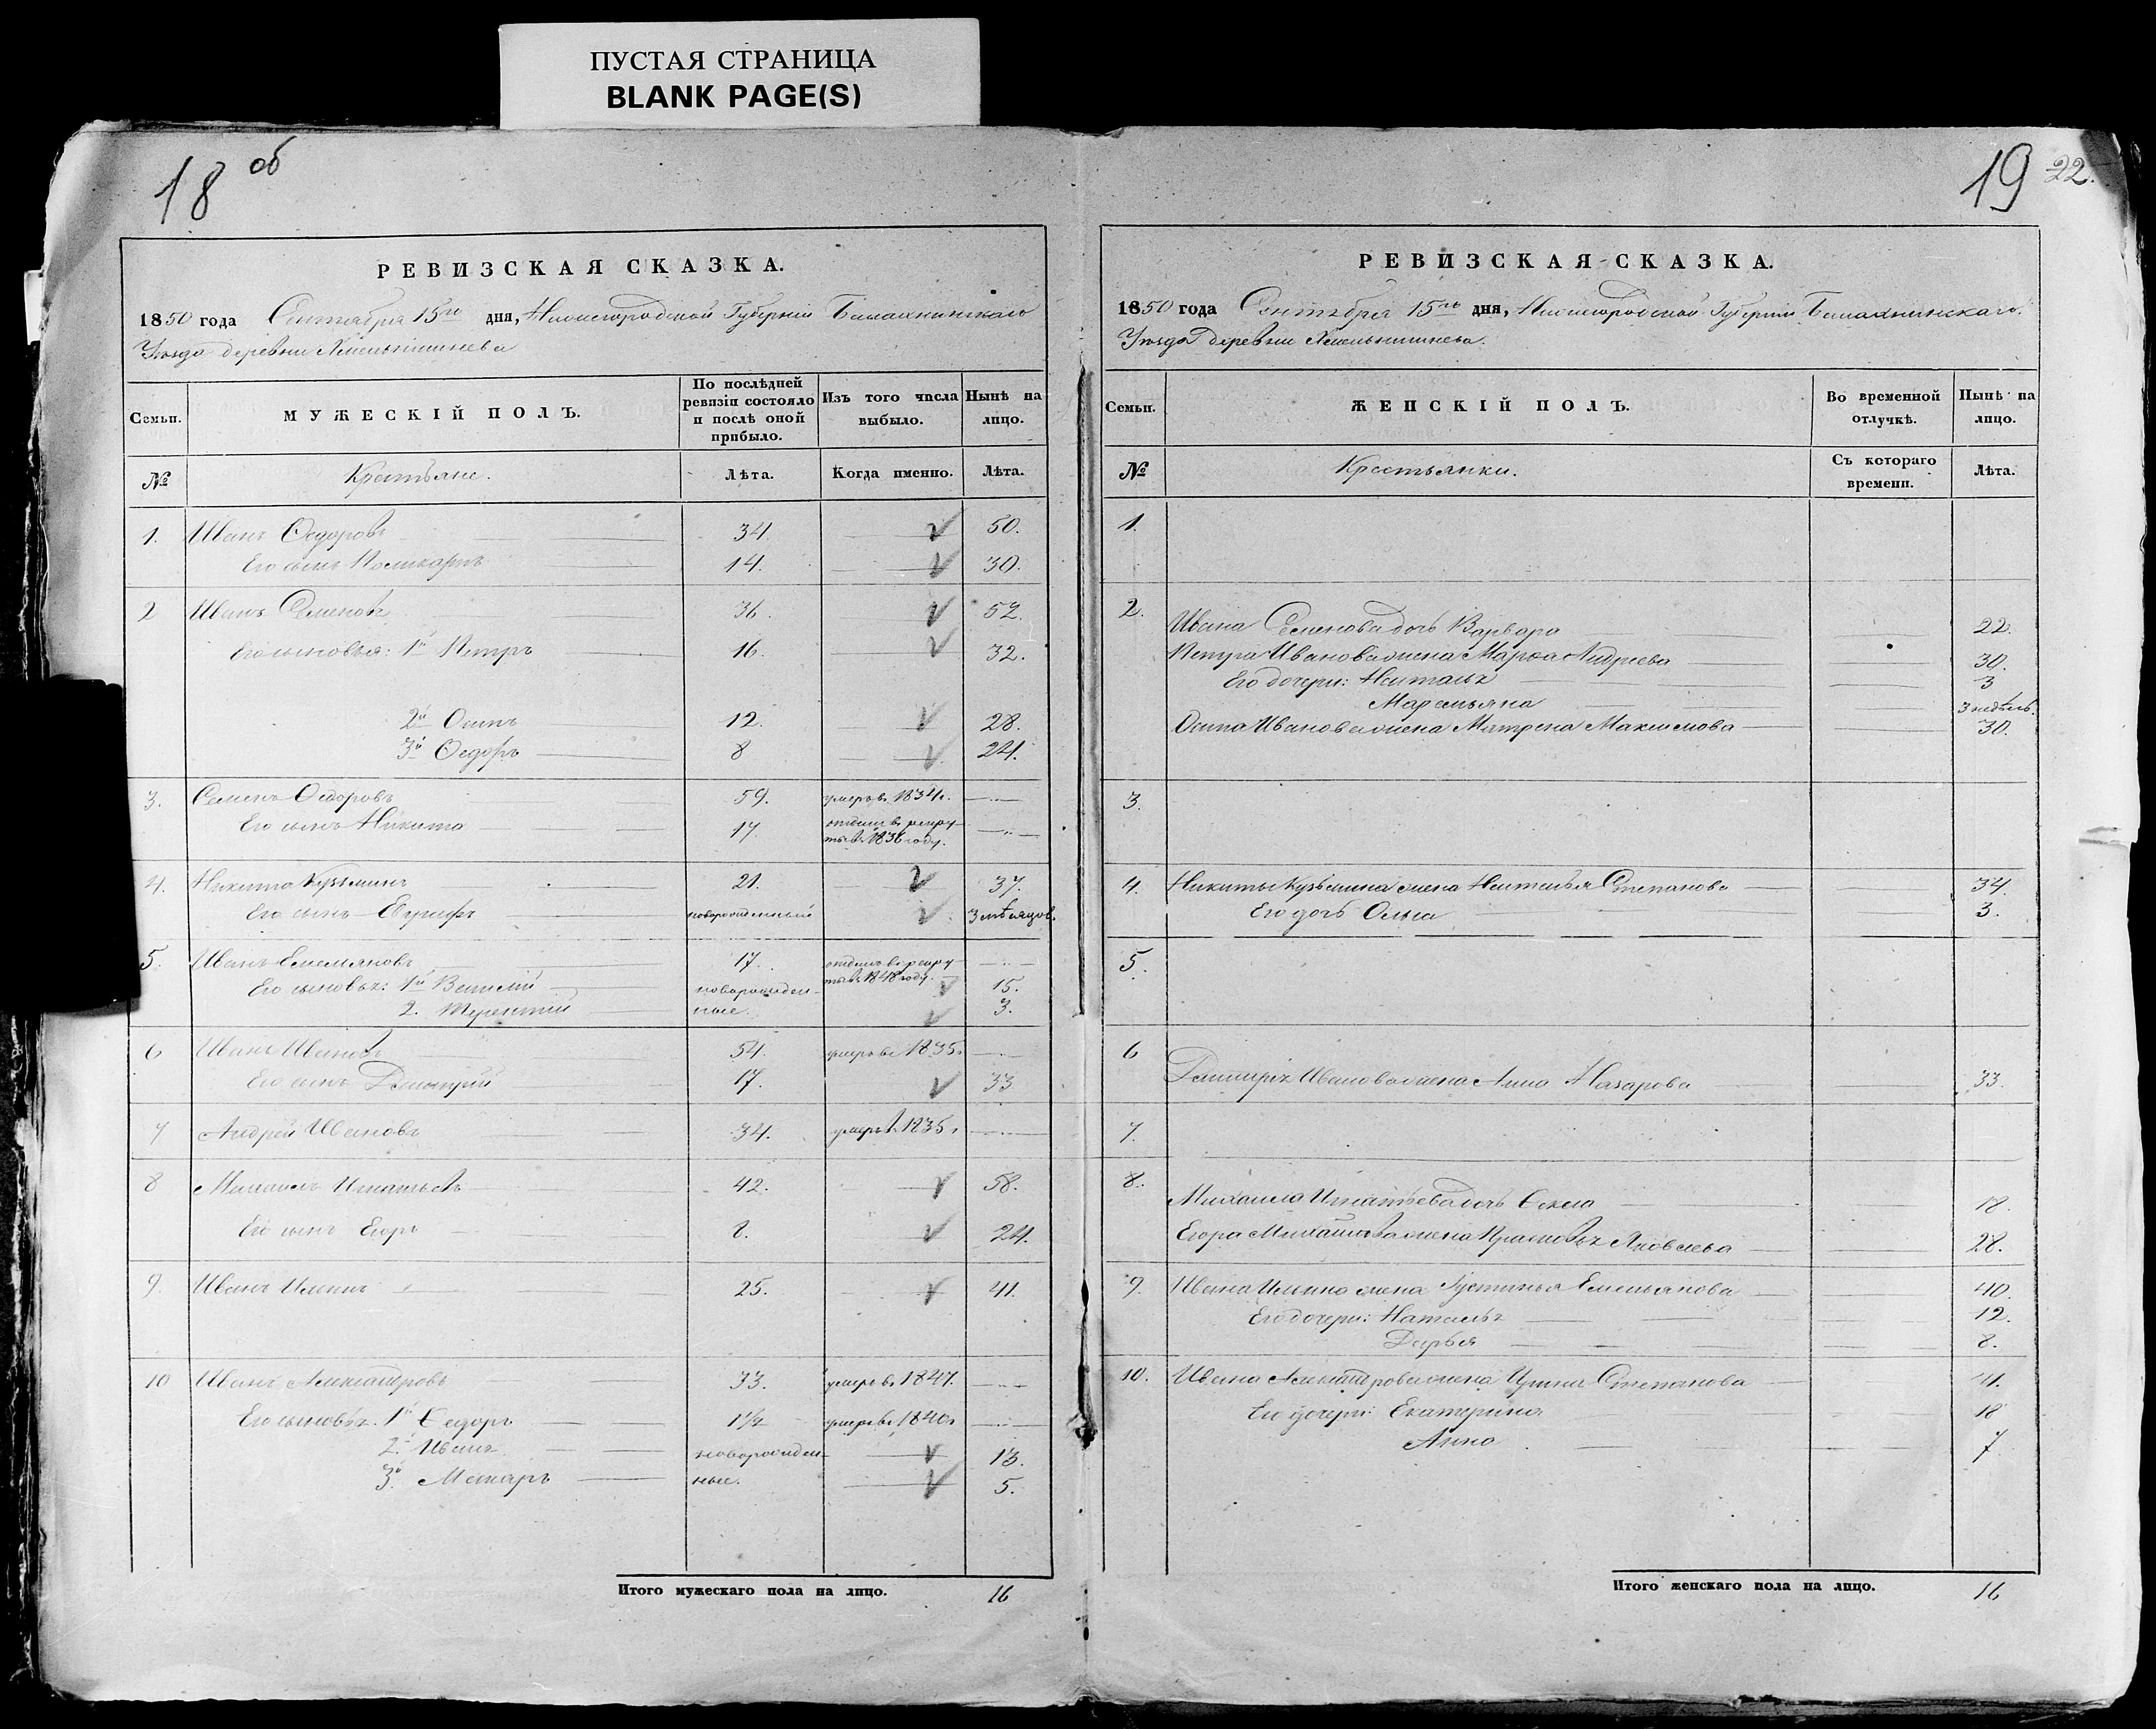 ПУСТАЯ СТРАНИЦА
BLANK PAGE(S)
18 об
РЕВИЗСКАЯ СКАЗКА.
1850 года Сентября 15го дня, Нижегородской Губерніи Балахнинскаго
Уѣзда деревни
Семьи.
МУЖЕСКІЙ ПОЛЪ.
По послѣдней ревизіи состояло и послѣ оной прибыло.
Изъ того числа выбыло.
Нынѣ на лицо.
№
Крестьяне.
Лѣта.
Когда именно.
Лѣта.
1. Иванъ Ѳедоровъ 34. 50.
Его сынъ Поликарпъ 14. 30.
2 Иванъ Семеновъ 36. 52.
Его сыновья: 1й Петръ 16. 32.
2й Осипъ 12. 28.
3й Ѳедоръ 8 24.
3. Семенъ Ѳедоровъ 59. умеръ въ 1834г.
Его сынъ Никита 17. отданъ въ рекру-
ты въ 1836 году.
4. Никита Кузьминъ 21. 37.
Его сынъ новорожденный 3 мѣсяцов.
5. Иванъ Емельяновъ 17. отданъ въ рекру-
ты въ 1848 году.
Его сыновья: 1й Василій новорожден- 15.
2. Терентій ные. 3.
6 Иванъ Ивановъ 54. умеръ въ 1835г
Его сынъ Дмитрій 17. 33
7 Андрей Ивановъ 34. умеръ въ 1835г
8 Михаилъ Игнатьевъ 42. 58.
Его сынъ Егоръ 8. 24.
9. Иванъ Ильинъ 25. 41.
10 Иванъ Александровъ 33. умеръ въ 1847.
Его сыновья: 1й Ѳедоръ 1½ умеръ въ 1840г
2. Иванъ новорожден- 13.
3й Макаръ ные. 5.
Итого мужескаго пола на лицо. 16
19 22.
РЕВИЗСКАЯ СКАЗКА.
1850 года Сентября 15го дня, Нижегородской Губерніи Балахнинскаго
Уѣзда деревни
Семьи.
ЖЕНСКІЙ ПОЛЪ.
Во временной отлучкѣ.
Нынѣ на лицо.
№
Крестьянки.
Съ котораго времени.
Лѣта.
1.
2. Ивана Семенова дочь Варвара 22.
Петра Иванова жена Марѳа Андреева 30.
Его дочери: Наталья 3
Маремьяна 3 недѣль.
Осипа Иванова жена Матрена Максимова 30.
3.
4. Никиты Кузьмина жена Наталья Степанова 34.
Его дочь Ольга 3.
5.
6 Дмитрія Иванова жена Анна Назарова 33.
7.
8. Михаила Игнатьева дочь 18.
Егора Михайлова жена Прасковья Яковлева 28.
9. Ивана Ильина жена Устинья Емельянова 40.
Его дочери: Наталья 12.
Дарья 8.
10. Ивана Александрова жена Ирина Степанова 41.
Его дочери: Екатерина 18
Анна 7
Итого женскаго пола на лицо. 16